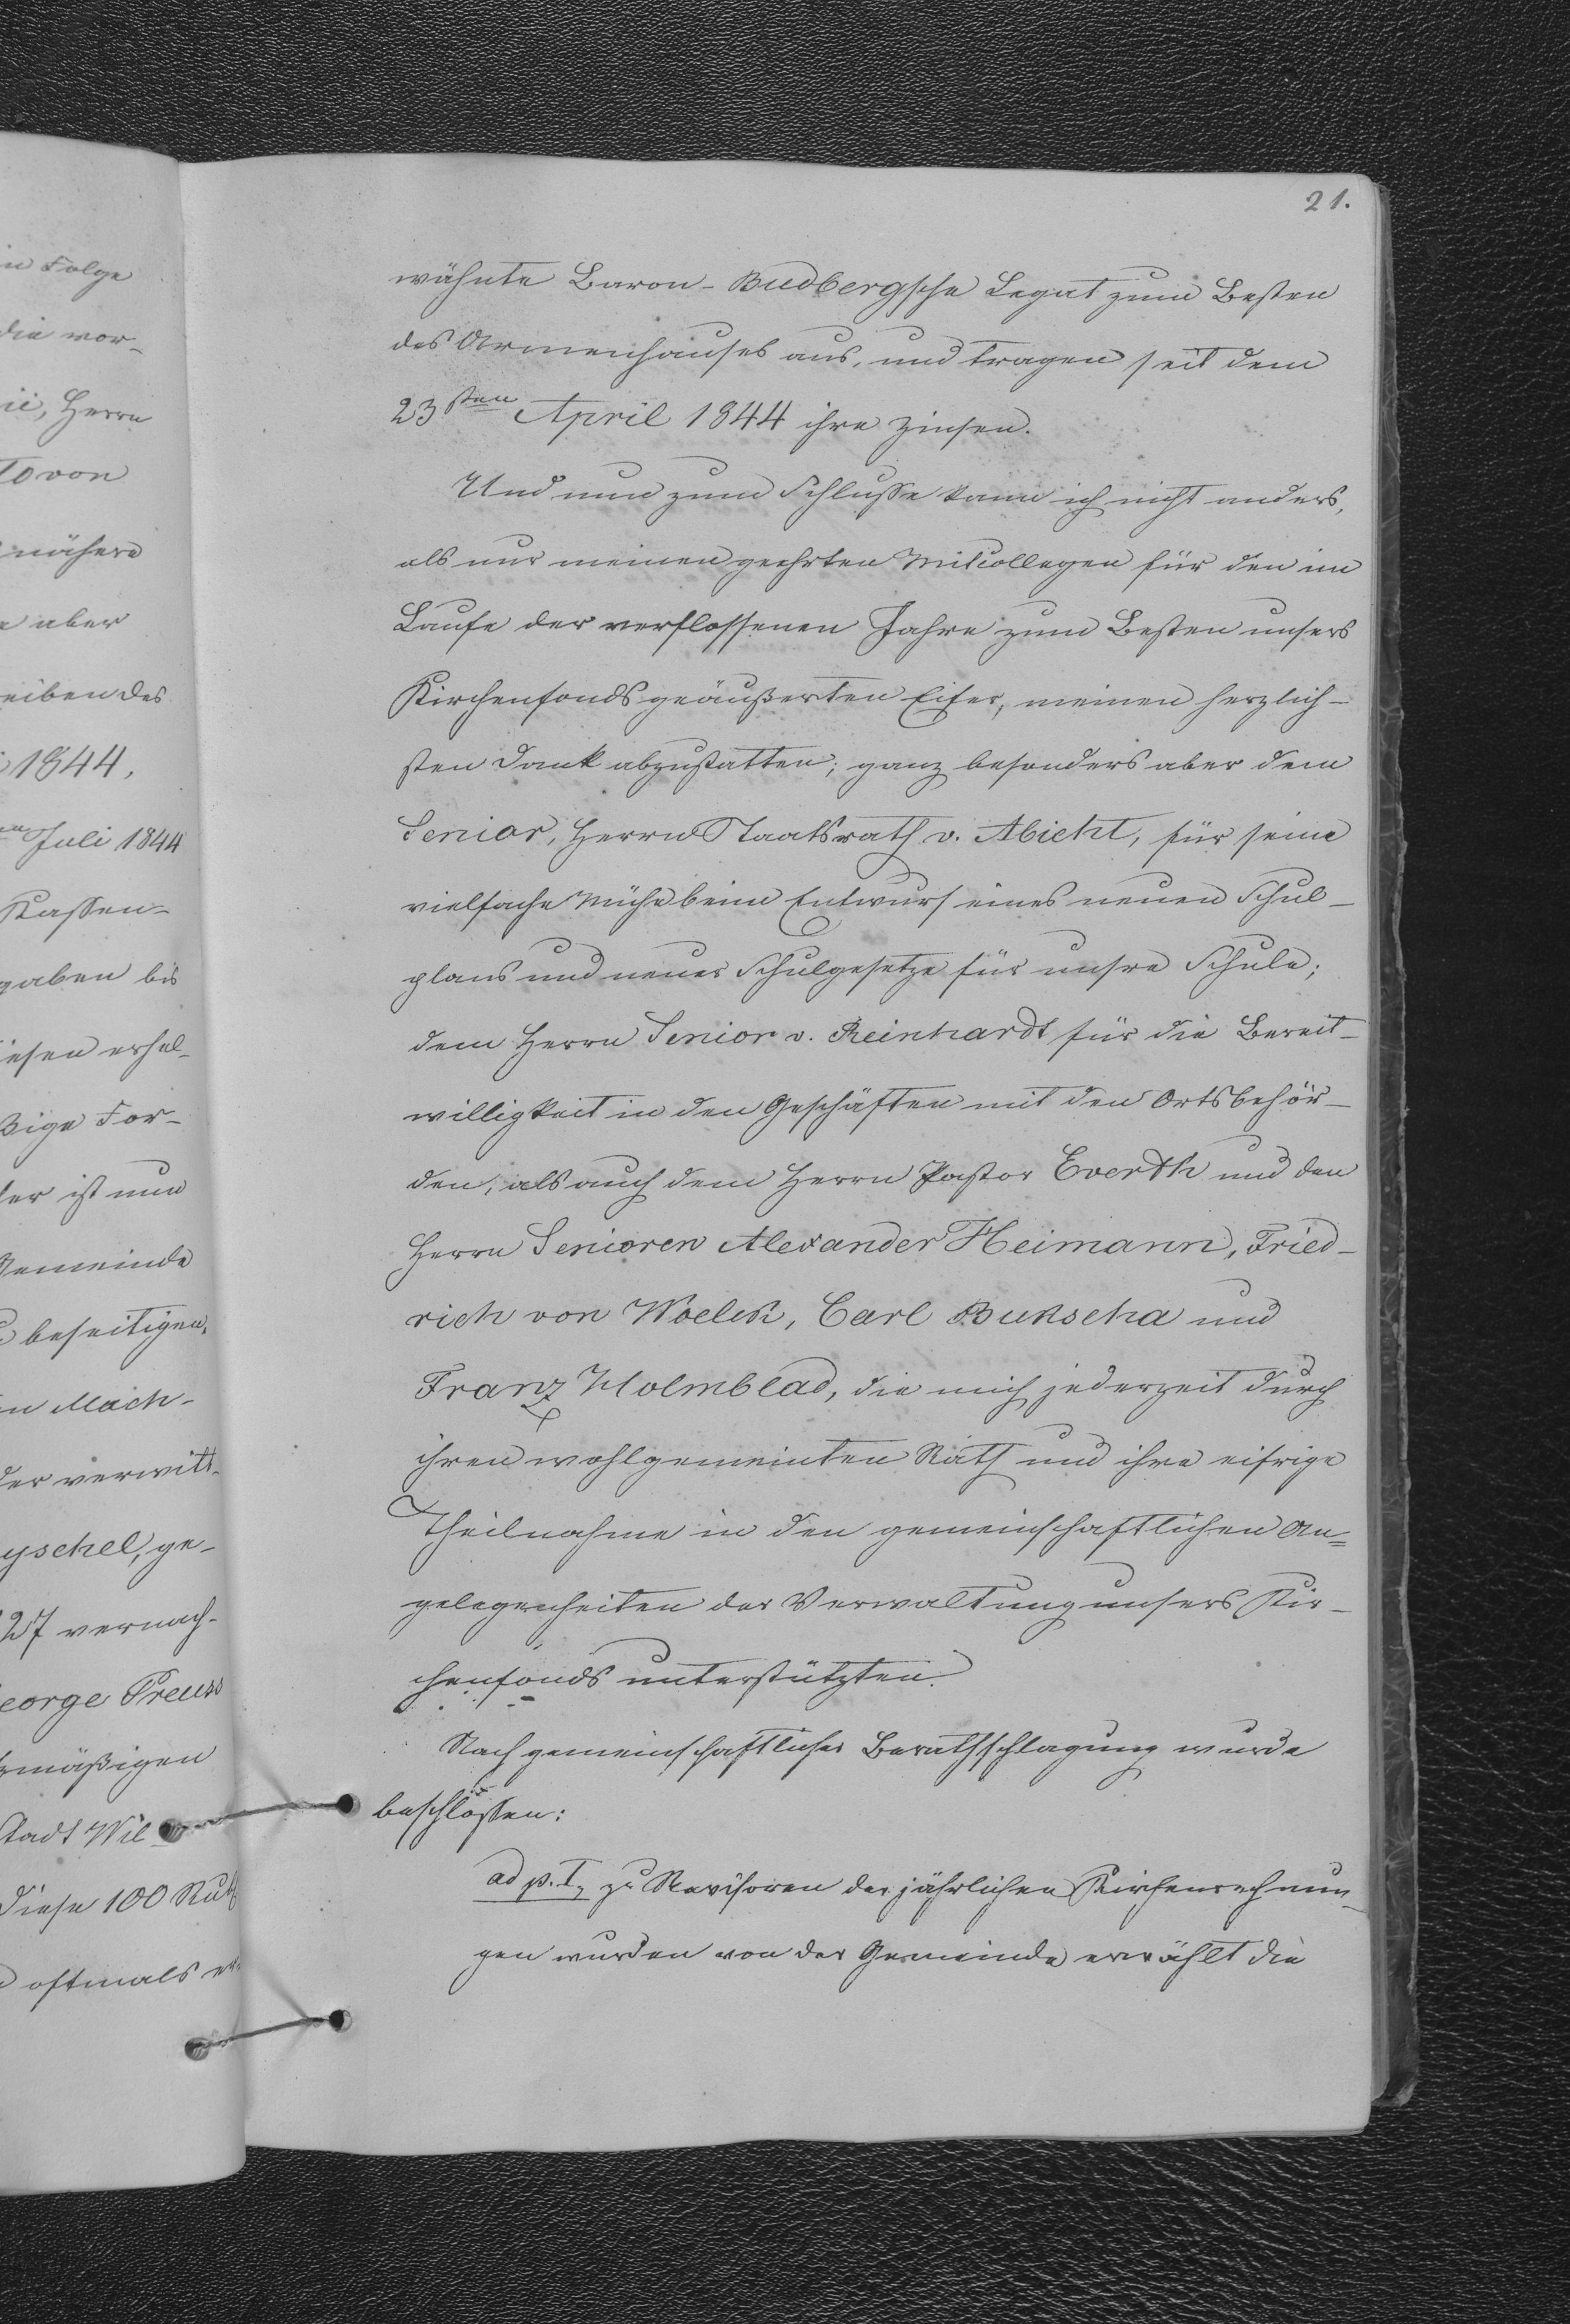 21.
wähnte Baron-Budbergsche Legat zum Besten
des Armenhauses aus, und tragen seit dem
23sten April 1844 ihre Zinsen.
Und nun zum Schlusse kann ich nicht anders,
als nur meinen geehrten Mitcollegen für den im
Laufe der verflossenen Jahre zum Besten unsers
Kirchenfonds geäußerten Eifer, meinen herzlich-
sten Dank abzustatten; ganz besonders aber dem
Senior, Herrn Staatsrath v. Abicht, für seine
vielfache Mühe beim Entwurf eines neuen Schul-
plans und neuer Schulgesetze für unsre Schule;
dem Herrn Senior v. Reinhardt für die Bereit-
willigkeit in den Geschäften mit den Ortsbehör-
den, als auch dem Herrn Pastor Everth und den
Herrn Senioren Alexander Heimann, Fried-
rich von Woelck, Carl Bukscha und
Franz Holmblad, die mich jederzeit durch
ihren wohlgemeinten Rath und ihre eifrige
Theilnahme in den gemeinschaftlichen An=
gelegenheiten der Verwaltung unsers Kir-
chenfonds unterstützten.
Nach gemeinschaftlicher Berathschlagung wurde
beschlossen:
ad p. I, zu Revisoren der jährlichen Kirchenrechnun-
gen wurden von der Gemeinde erwählt die
in Folge
die vor-
Herrn
von
nähere
aber
eiben des
1844,
Juli 1844
Kassen-
gaben bis
iesen erhel-
ßige For-
er ist nun
Gemeinde
beseitigen,
n Mach-
der verwitt-
yschel, ge-
27 vermach-
eorge Preuss
mäßigen
Stadt Wil-
diese 100 Rub
oftmals er-